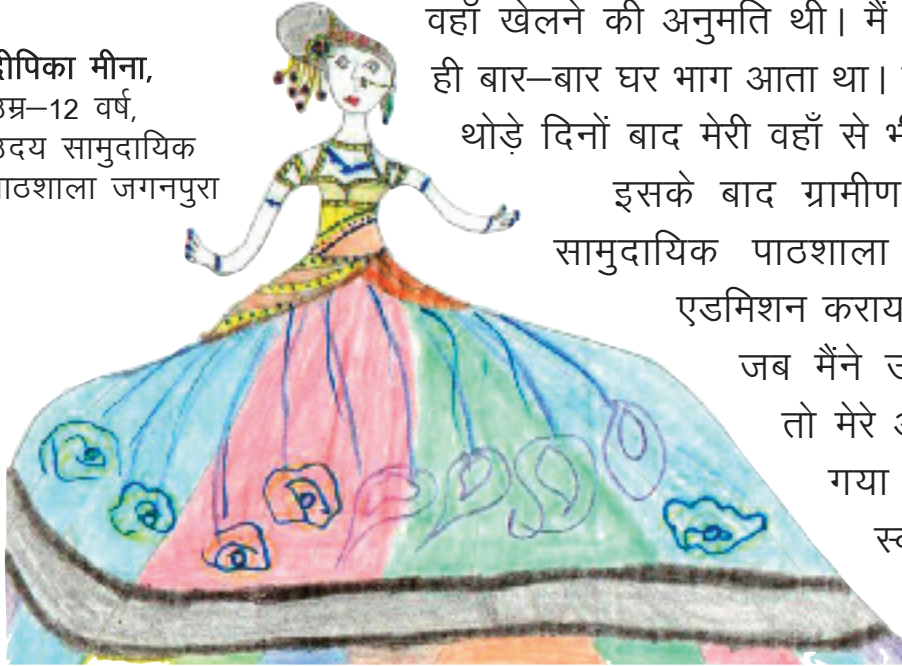 दीपिका मीना,
उम्र–12 वर्ष,
उदय सामुदायिक
पाठशाला जगनपुरा
वहाँ खेलने की अनुमति थी। मैं
ही बार–बार घर भाग आता था।
थोड़े दिनों बाद मेरी वहाँ से
इसके बाद ग्रामीण
सामुदायिक पाठशाला
एडमिशन
जब मैंने
तो मेरे
गया